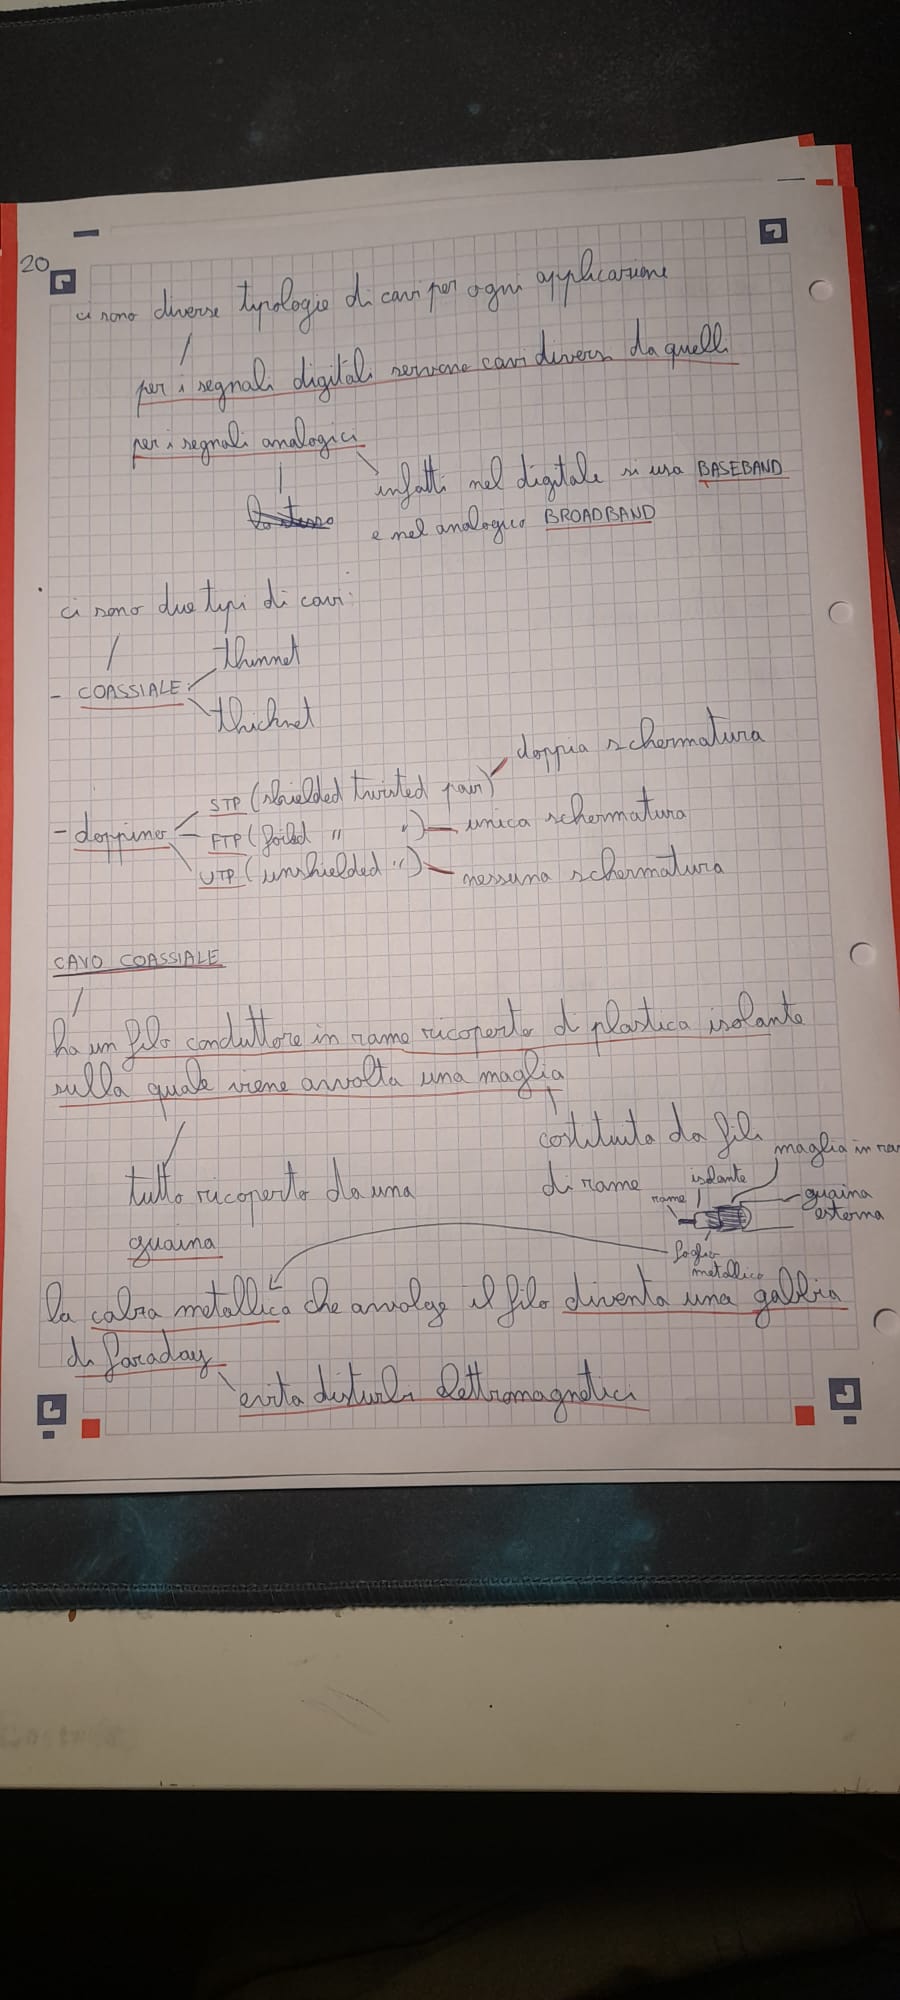 20
ci sono diverse typologie di cavi per ogni applicazione
per i segnali digitali servono cavi diversi da quelli
per i segnali analogici
infatti nel digitale si usa BASEBAND
e nel analogico BROADBAND
lo stesso
ci sono due tipi di cavi:
thinnet
- COASSIALE:
thicknet
doppia schermatura
STP (shielded twisted pair)
- doppino
FTP (foiled " ") unica schermatura
UTP (unshielded " ") nessuna schermatura
CAVO COASSIALE
ha un filo conduttore in rame ricoperto di plastica isolante
sulla quale viene avvolta una maglia
costituita da fili
di rame
tutto ricoperto da una
guaina
maglia in ra
isolante
rame
guaina
esterna
foglio
metallico
la calza metallica che avvolge il filo diventa una gabbia
di faraday
evita disturbi elettromagnetici